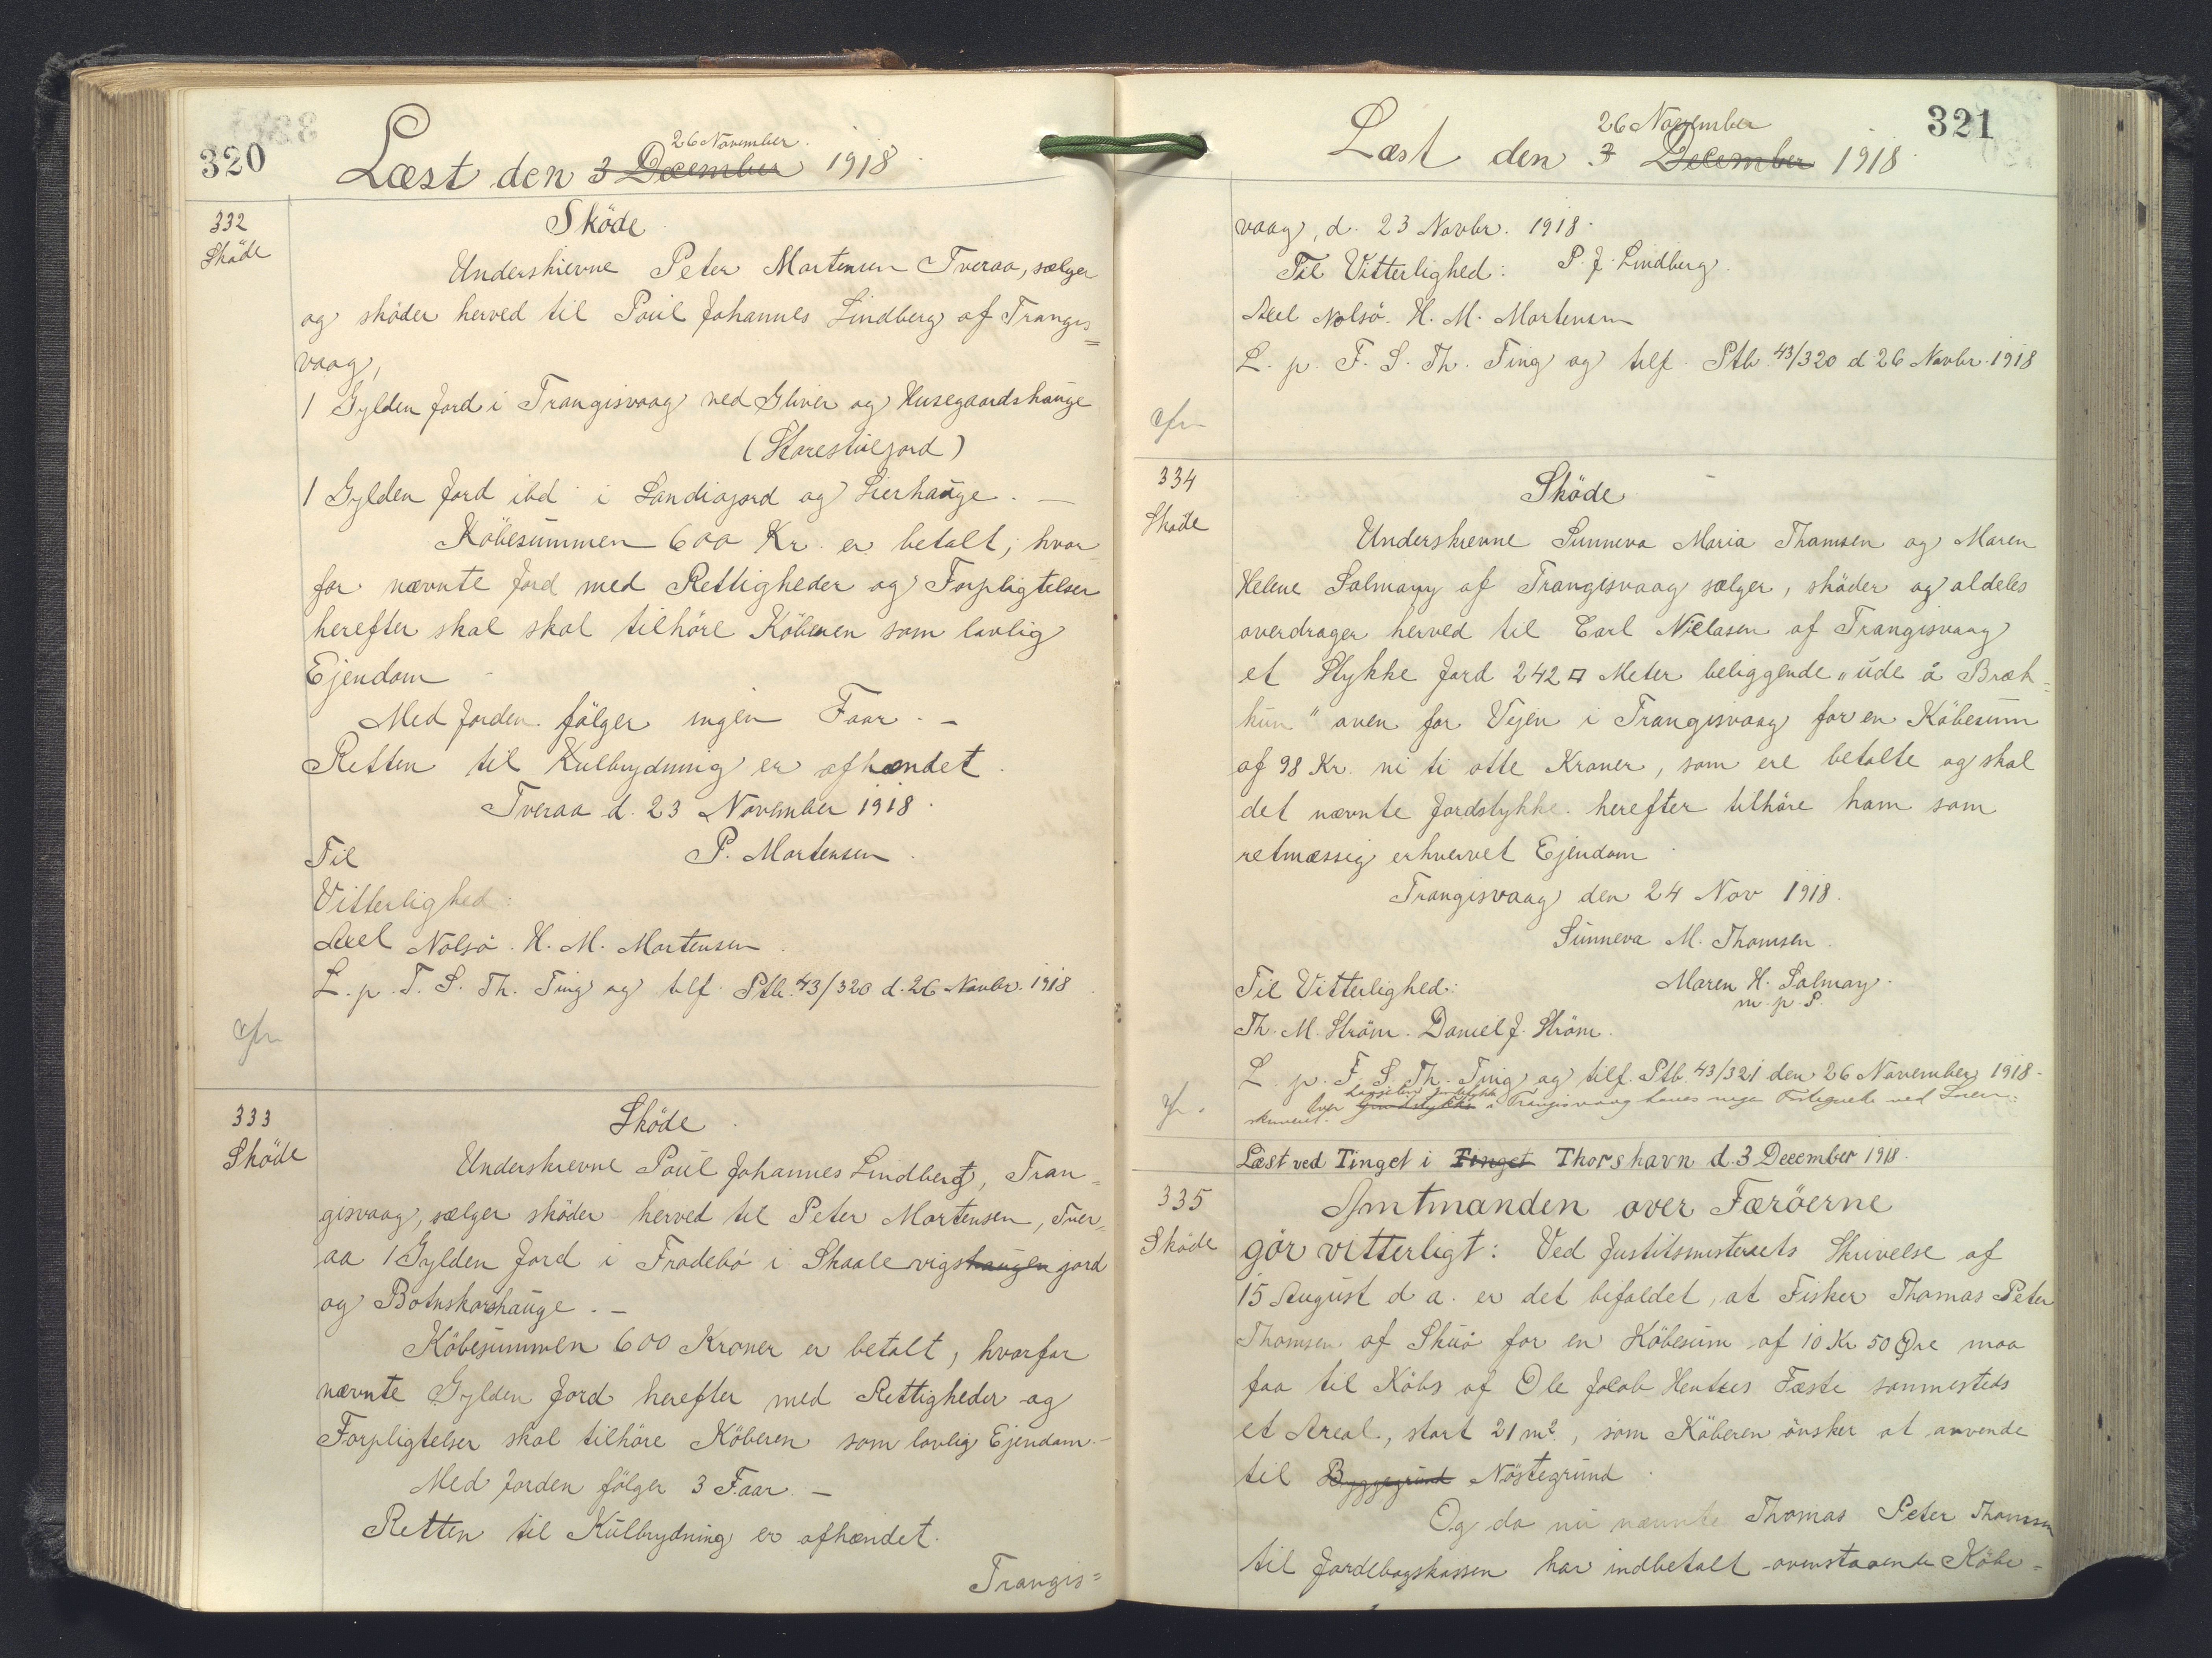 320
Læst den 3 December 1918
26 November
332
Sköde
Sköde
Underskrevne Peter Mortensen Tveraa, sælger
og sköder herved til Poul Johannes Lindberg af Trangis=
vaag,
1 Gylden Jord i Trangisvaag ved Gliver og Husegaardshauge
1 Gylden Jord ibd i Landiajord og Lierhauge. —
Köbesummen 600 Kr. er betalt; hvor
for nævnte Jord med Rettigheder og Forpligtelser
herefter skal skal tilhöre Köberen som lovlig
Ejendom
Med Jorden fölger ingen Faar. —
Retten til Kulbrydning er afhændet.
Tveraa d. 23 November 1918.
Til P. Mortensen.
Vitterlighed:
Axel Nolsö. H. M. Mortensen.
L. p. F. S. Th. Ting og tilf. Ptb. 43/320 d. 26 Novbr. 1918
333
Sköde
Sköde.
Underskrevne Poul Johannes Lindberg, Tran=
gisvaag, sælger sköder herved til Peter Mortensen, Tver=
aa 1 Gylden Jord i Frodebö i Skaalevigshaugen jord
og Botnskorshauge. —
Köbesummen 600 Kroner er betalt, hvorfor
nævnte Gylden Jord herefter med Rettigheder og
Forpligtelser skal tilhöre Köberen som lovlig Ejendom. —
Med Jorden fölger 3 Faar. —
Retten til Kulbrydning er afhændet.
Trangis=
321
26 November
Læst den 3 December 1918
vaag, d. 23 Novbr. 1918.
Til Vitterlighed: P. J. Lindberg.
Axel Nolsö. H. M. Mortensen
L. p. F. S. Th. Ting og tilf. Ptb. 43/320 d 26 Novbr. 1918
334
Sköde
Sköde
Underskrevne Sunneva Maria Thomsen og Maren
Helene Solmary af Trangisvaag sælger, sköder og aldeles
overdrager herved til Carl Niclasen af Trangisvaag
et Stykke Jord 242 □ Meter beliggende „ude å Bræk=
kun" oven for Vejen i Trangisvaag for en Köbesum
af 98 Kr. ni ti otte Kroner, som ere betalte og skal
det nævnte Jordstykke herefter tilhöre ham som
retmæssig erhvervet Ejendom
Trangisvaag den 24 Nov 1918.
Sunneva M. Thomsen.
Til Vitterlighed: Maren H. Solmary.
m. p. P.
Th. M. Ström. Daniel J. Ström.
L. p. F. S. Th. Ting og tilf. Ptb. 43/321 den 26 November 1918.
over Grundstykke i Trangisvaag haves
skriveriet.
Læst ved Tinget i Tinget Thorshavn d. 3 December 1918.
335
Sköde
Amtmanden over Færöerne
gör vitterligt: Ved Justitsministeriets Skrivelse af
15 August d a. er det bifaldet, at Fisker Thomas Peter
Thomsen af Skuö for en Köbesum af 10 Kr 50 Øre maa
faa til Köbs af Ole Jacob Hentzes Fæste sammesteds
et Areal, stort 21 m², som Köberen önsker at anvende
til Byggegrund Nöstegrund.
Og da nu nævnte Thomas Peter Thomsen
til Jordebogskassen har indbetalt ovenstaaende Köbe=